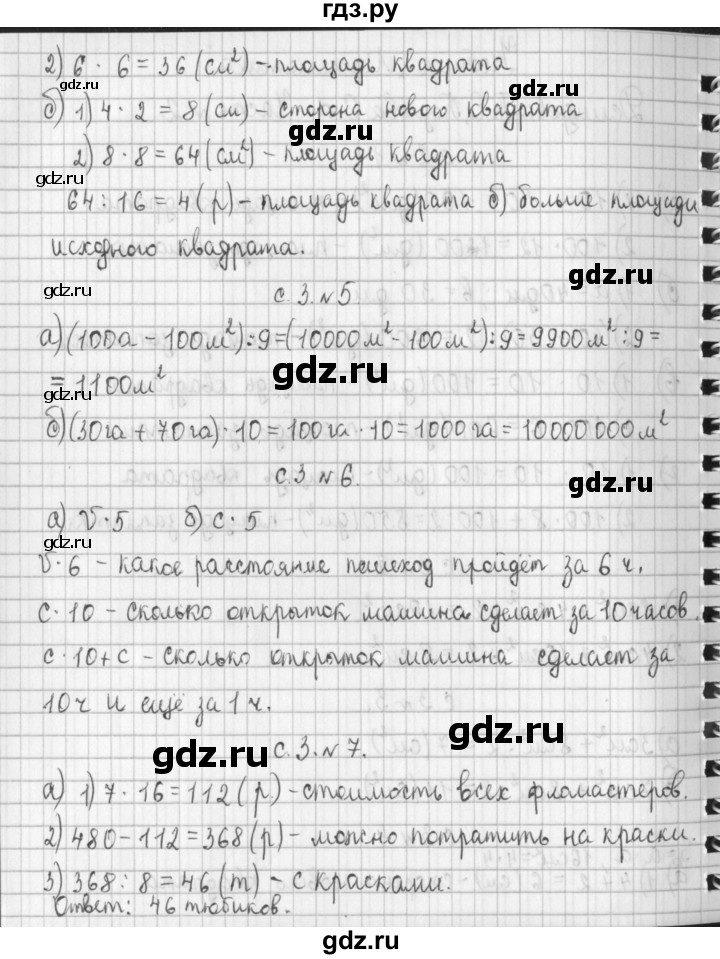 гдз.ру
2) 6 · 6 = 36 (см²) - площадь квадрата
gdz.ru
gdz.ru
б) 1) 4 · 2 = 8 (см) - сторона нового квадрата
gdz.ru
2) 8 · 8 = 64 (см²) - площадь квадрата
gdz.ru
64 : 16 = 4 (р) - площадь квадрата б) больше площади
исходного квадрата.
gdz.ru
gdz.ru
с. 3. № 5
а) (100а - 100м²) : 9 = (10000м² - 100м²) : 9 = 9900м² : 9 =
gdz.ru
= 1100м²
gdz.ru
б) (30га + 70га) · 10 = 100га · 10 = 1000га = 10000000м²
с. 3 № 6.
gdz.ru
а) v · 5 б) с · 5
gdz.ru
v · 6 - какое расстояние пешеход пройдёт за 6 ч.
с · 10 - сколько открыток машина сделает за 10 часов.
gdz.ru
с · 10 + с - сколько открыток машина сделает за
gdz.ru
10 ч и ещё за 1 ч.
gdz.ru
с. 3. № 7.
gdz.ru
а) 1) 7 · 16 = 112 (р) - стоимость всех фломастеров.
2) 480 - 112 = 368 (р) - можно потратить на краски.
gdz.ru
3) 368 : 8 = 46 (т) - с красками.
gdz.ru
Ответ: 46 тюбиков.
gdz.ru